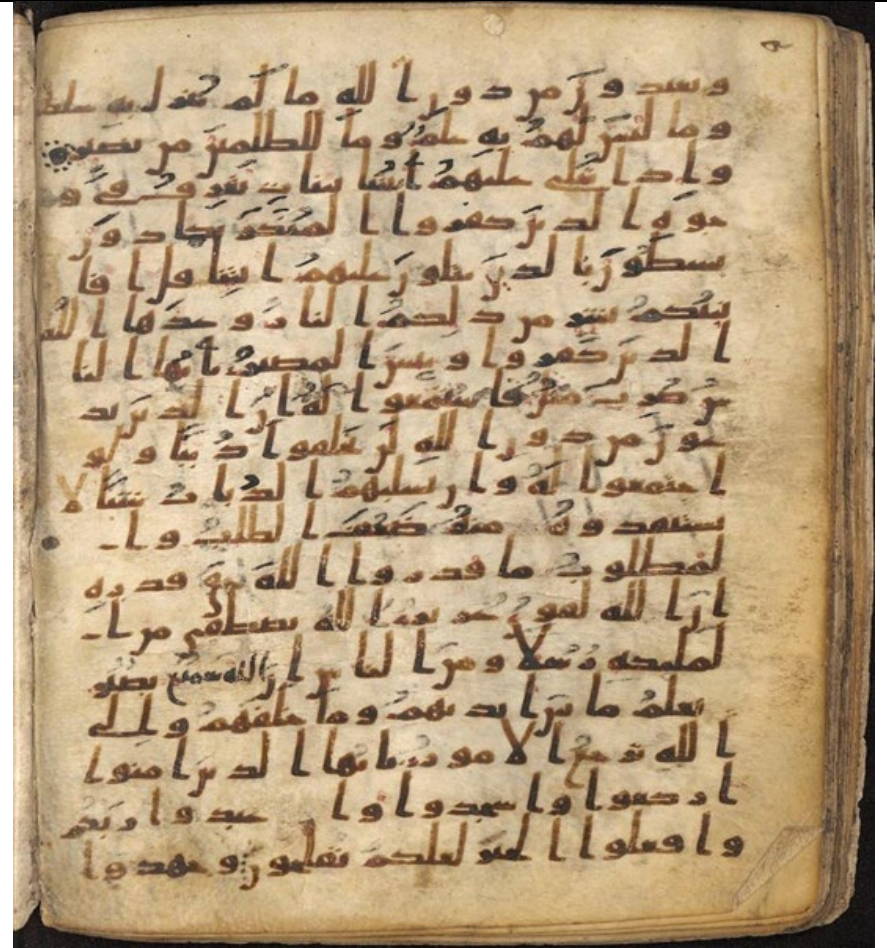 ويعبدون من دون الله ما لم ينزل به سلطنا
وما ليس لهم به علم وما للظلمين من نصير
واذا تتلى عليهم ايتنا بينت تعرف في و
جوه الذين كفروا المنكر يكادون
يسطون بالذين يتلون عليهم ايتنا قل افا
نبئكم بشر من ذلكم النار وعدها الله
الذين كفروا وبئس المصير يايها النا
س ضرب مثل فاستمعوا له ان الذين تد
عون من دون الله لن يخلقوا ذبابا ولو
اجتمعوا له وان يسلبهم الذباب شيئا لا
يستنقذوه منه ضعف الطلب وا
لمطلوب ما قدروا الله حق قدره
ان الله لقوي عزيز الله يصطفي من ا
لملئكة رسلا ومن الناس ان الله سميع بصير
يعلم ما بين ايديهم وما خلفهم والى
الله ترجع الامور يايها الذين امنوا
اركعوا واسجدوا واعبدوا ربكم
وافعلوا الخير لعلكم تفلحون وجهدوا